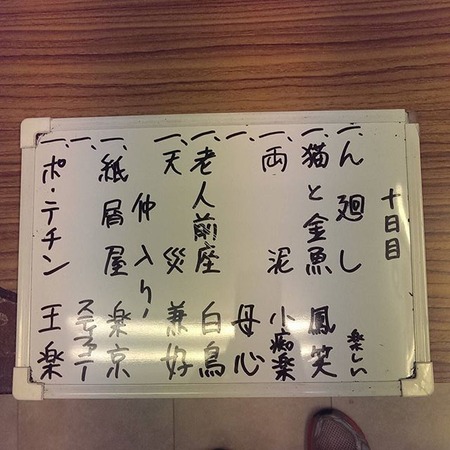 十日目
一、ん廻し 楽しい
一、猫と金魚 鳳笑
一、両泥 小痴楽
一、 母心
一、老人前座 白鳥
一、天災 兼好
仲入り
一、紙屑屋 楽京
一、 ステファニー
一、ポ・テチン 王楽